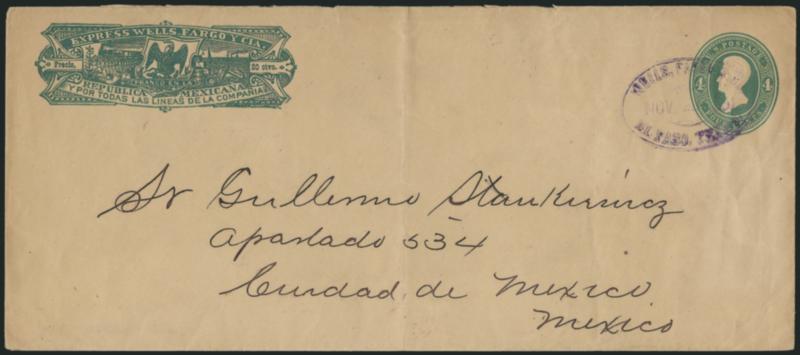 EXPRESS WELLS, FARGO Y CIA.
Precio, 20 ctvs.
REPUBLICA MEXICANA
Y POR TODAS LAS LINEAS DE LA COMPAÑIA
U.S. POSTAGE
4 4
WELLS, FARGO
NOV
EL PASO, TEX.
Sr Guillermo
Apartado 534
Ciudad de Mexico
Mexico